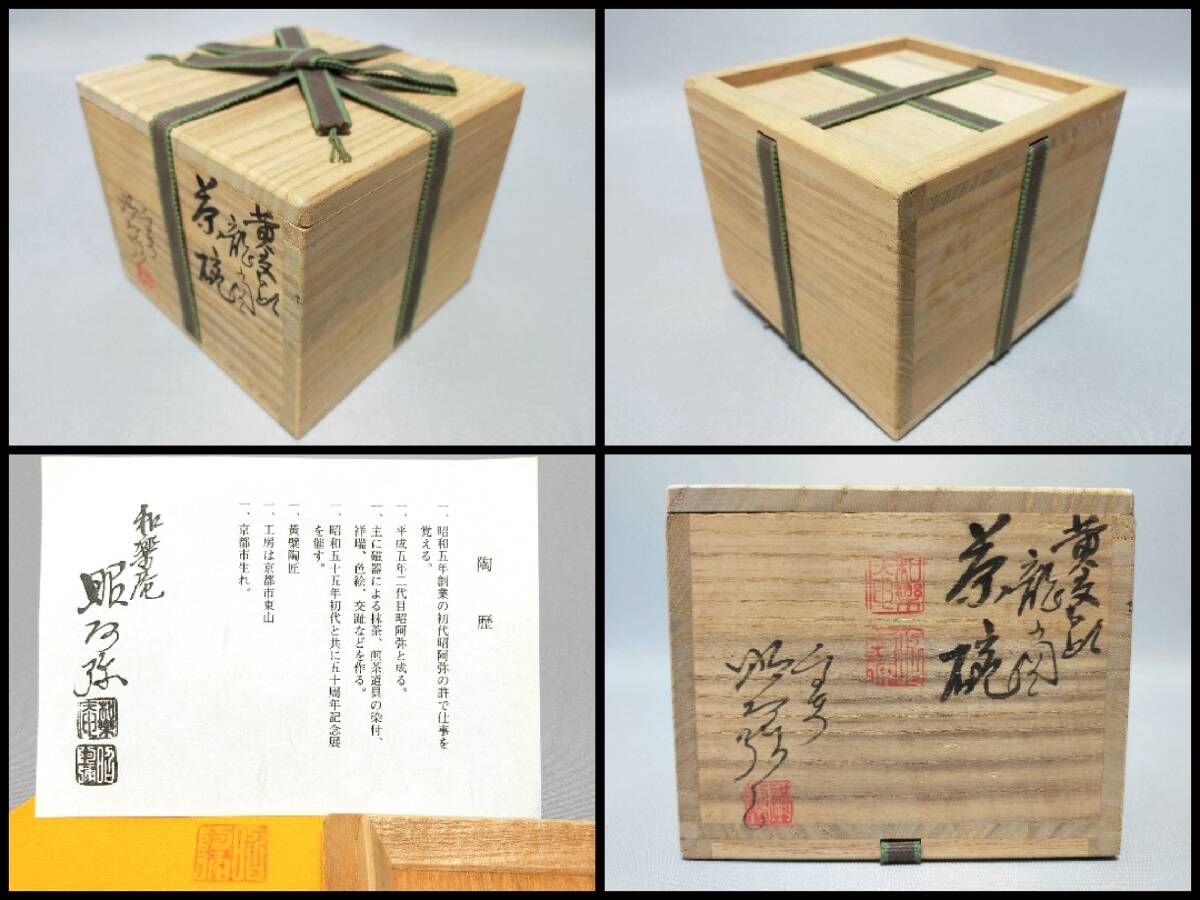 黄交趾
龍の図
茶碗
陶歴
一、昭和五年創業の初代昭阿弥の許で仕事を
覚える。
一、平成五年二代目昭阿弥と成る。
一、主に磁器による抹茶、煎茶道具の染付、
祥瑞、色絵、交趾などを作る。
一、昭和五十五年初代と共に五十周年記念展
を催す。
一、黄檗陶匠
一、工房は京都市東山
一、京都市生れ。
和楽庵
昭阿弥
黄交趾
龍の図
茶碗
昭阿弥